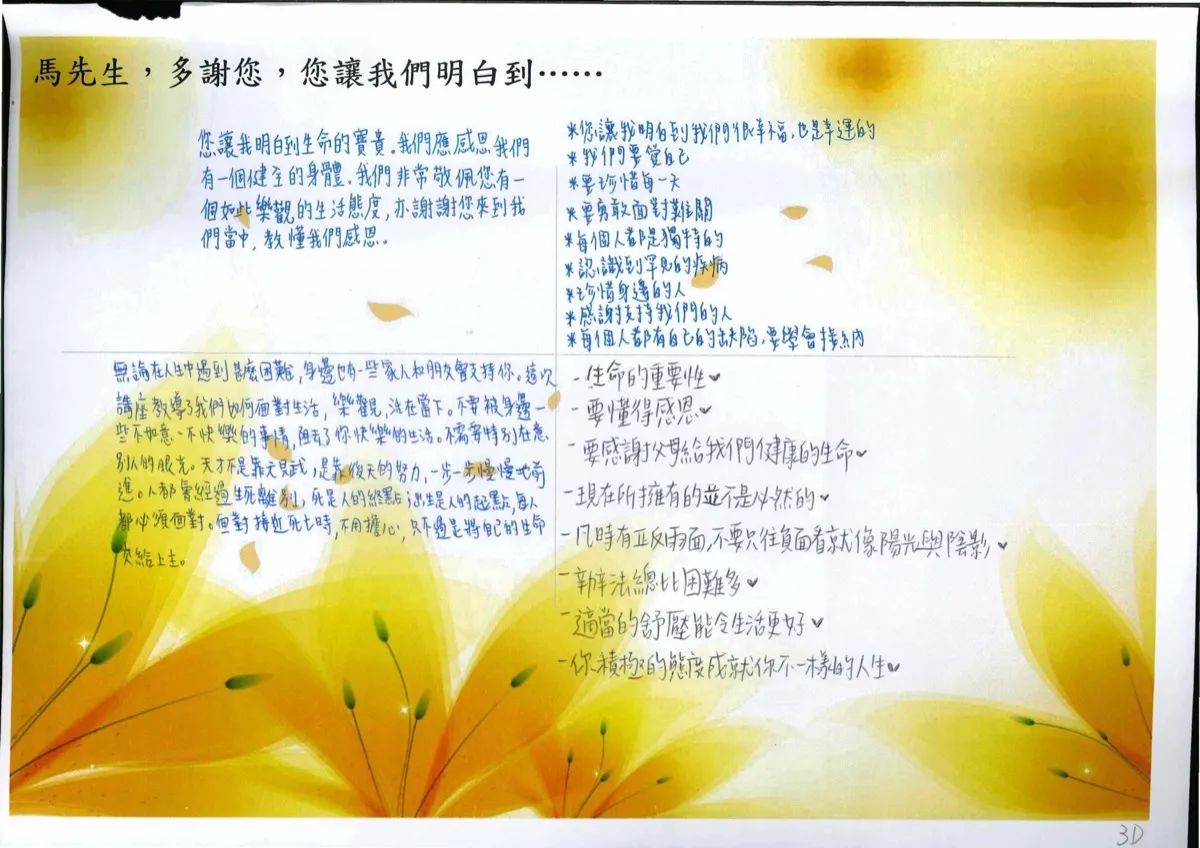 馬先生，多謝您，您讓我們明白到……
您讓我明白到生命的寶貴。我們應感恩我們
有一個健全的身體。我們非常敬佩您有一
個如此樂觀的生活態度，亦謝謝您來到我
們當中，教懂我們感恩。
*您讓我明白到我們很幸福，也是幸運的
*我們要愛自己
*要珍惜每一天
*要勇敢面對難關
*每個人都是獨特的
*認識到罕見的疾病
*珍惜身邊的人
*感謝支持我們的人
*每個人都有自己的缺陷，要學會接納
無論在人生中遇到甚麼困難，身邊也有一些家人和朋友會支持你。這次
講座教導了我們如何面對生活，樂觀，活在當下。不要被身邊一
些不如意、不快樂的事情，阻去了你快樂的生活。不需要特別在意
別人的眼光。天才不是靠天賦，是靠後天的努力，一步一步慢慢地前
進。人都會經過生死離別，死是人的終點，出生是人的起點，每人
都必須面對。面對接近死亡時，不用擔心，只不過是將自己的生命
交給上主。
-生命的重要性♥
-要懂得感恩♥
-要感謝父母給我們健康的生命♥
-現在所擁有的並不是必然的♥
-凡時有正反兩面，不要只往負面看就像陽光與陰影♥
-辦法總比困難多♥
-適當的舒壓能令生活更好♥
-你積極的態度成就你不一樣的人生♥
3D